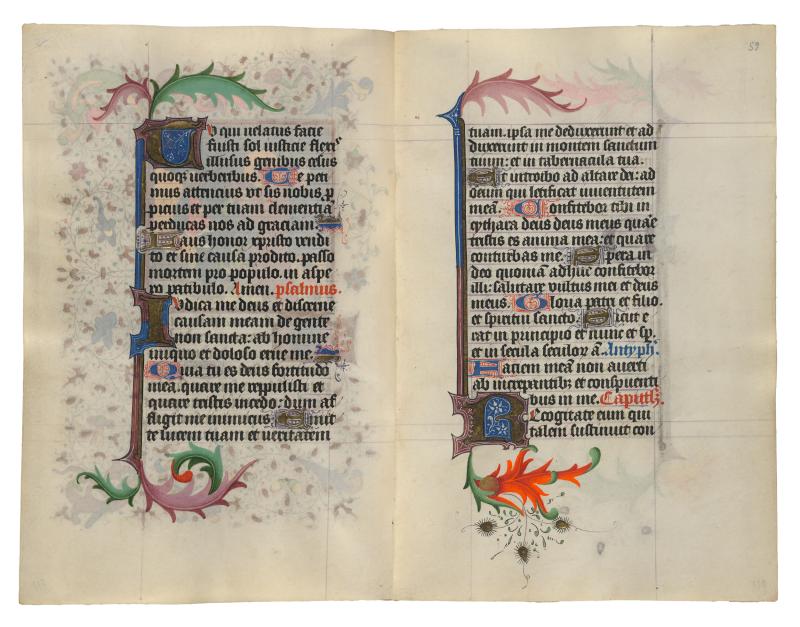 Tu qui uelatus facie
fuisti sol iusticie flexis
illusus genibus cesus
quoqz uerberibus. Te peti
mus attencius vt sis nobis p
picius et per tuam clementiā
perducas nos ad graciam.
Laus honor xpristo vendi
to et sine causa prodito. passo
mortem pro populo. in aspe
ro patibulo. Amen. psalmus.
Iudica me deus et discerne
causam meam de gente
non sancta: ab homine
iniquo et doloso erue me.
Quia tu es deus fortitudo
mea. quare me repulisti et
quare tristis incedo: dum af
fligit me inimicus Emit
te lucem tuam et ueritatem
59
tuam. ipsa me deduxerunt et ad
duxerunt in montem sanctum
tuum: et in tabernacula tua.
Et introibo ad altare dei: ad
deum qui letificat iuuentutem
meā. Confitebor tibi in
cythara deus deus meus quare
tristis es anima mea: et quare
conturbas me. Spera in
deo quoniā adhuc confitebor
illi: salutare vultus mei et deus
meus. Gloria patri et filio.
et spiritui sancto. Sicut e
rat in principio et nunc et sp.
et in secula seculoꝝ ā. Antyph.
Faciem meā non auerti
ab increpantibz et conspuenti
bus in me. Capitłz.
Recogitate eum qui
talem sustinuit con